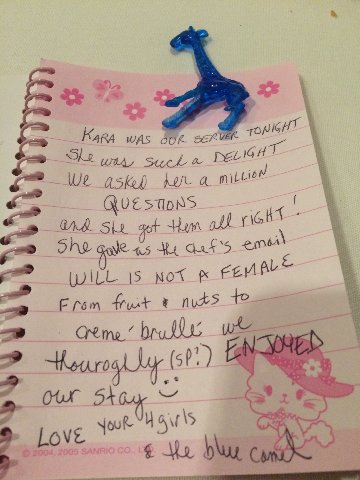 KARA WAS OUR SERVER TONIGHT
She was such a DELIGHT
We asked her a million
QUESTIONS
and she got them all RIGHT!
She gave us the chef's email
WILL IS NOT A FEMALE
From fruit & nuts to
creme' brullé we
thouroghly (SP?) ENJOYED
our stay
LOVE YOUR 4girls
& the blue camel
© 2004, 2005 SANRIO CO., L